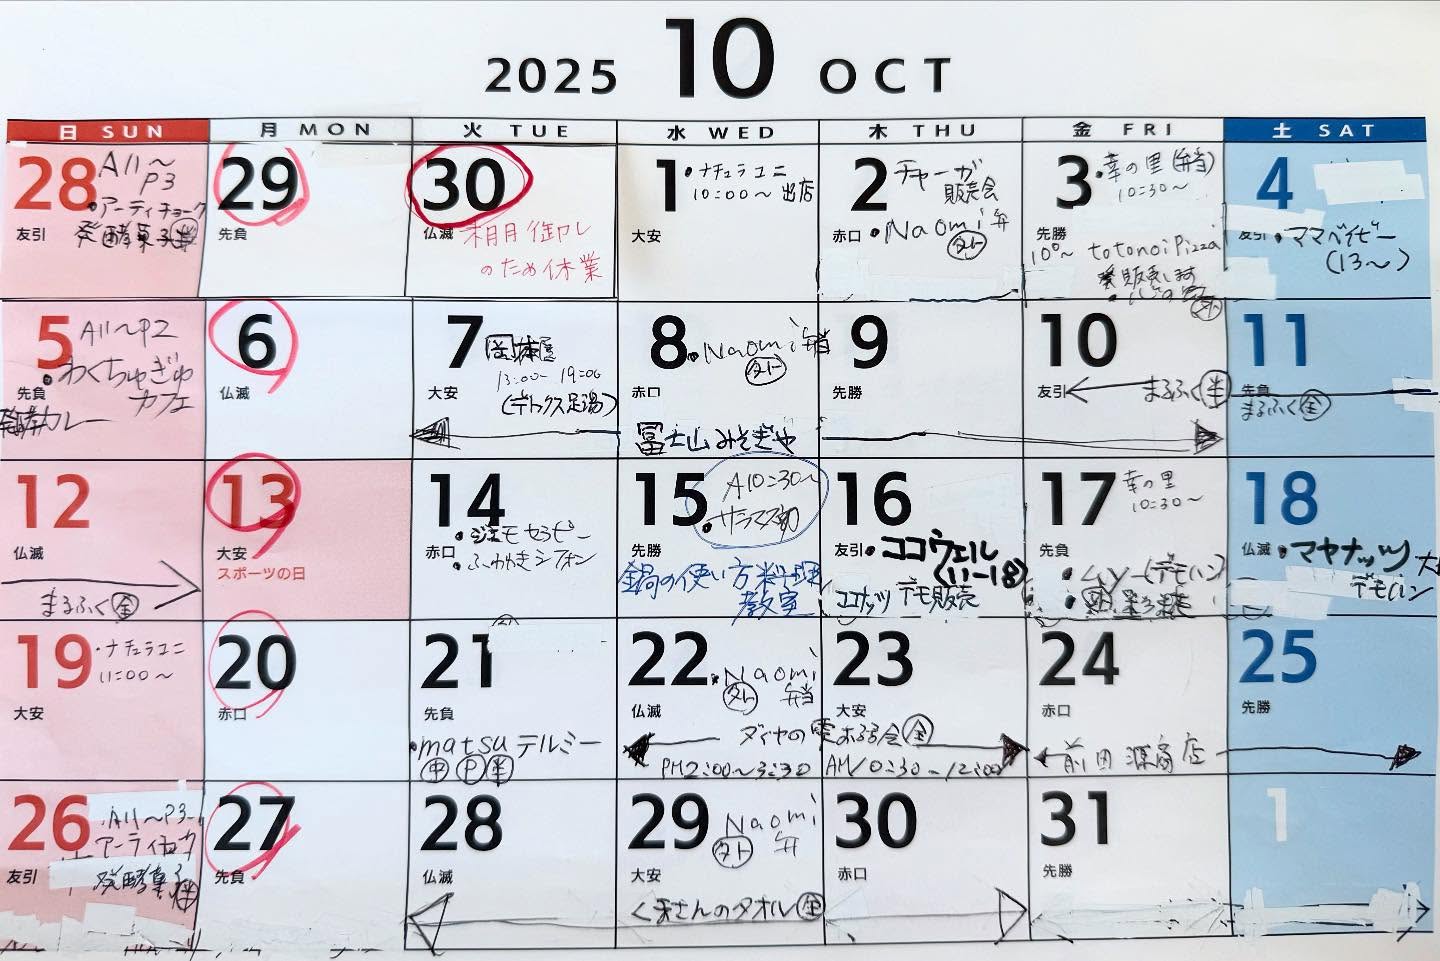 2025 10 OCT
日 SUN 月 MON 火 TUE 水 WED 木 THU 金 FRI 土 SAT
28 A11〜
P3
・アーティチョーク
友引 発酵菓子
29
先負
30
仏滅 棚卸し
のため休業
1 ・ナチュラユニ
10:00〜出店
大安
2 チャーガ
販売会
赤口 ・Naomi弁
外
3 ・幸の里(弁当)
10:30〜
先勝
10°°〜 totonoiPizza
販売します
外
4
友引 ・ママベイビー
(13〜)
5 A11〜P2
・わくちゅぎゅ
先負 カフェ
発酵カレー
6
仏滅
7
大安 13:00〜19:00
(デトックス足湯)
8 ・Naomi弁当
赤口 外
冨士山みそぎや
9
先勝
10
友引 まるふく 半
11
先負
まるふく 金
12
仏滅
まるふく 金
13
大安
スポーツの日
14
赤口 ・ジェモセラピー
・ふわゆきシフォン
15 A10:30〜
・サラマ
先勝
鍋の使い方料理
教室
16
友引 ・ココウェル
(11-18)
ココナッツ デモ販売
17 幸の里
10:30〜
先負
・ムソー(デモハン)
18
仏滅 ・マヤナッツ 大
デモハン
19 ・ナチュラユニ
11:00〜
大安
20
赤口
21
先負
・matsuテルミー
22 ・Naomi
外 弁当
仏滅
ダイヤの
PM2:00〜3:30
23
大安
会 金
AM10:30-12:00
24
赤口
前田源商店
25
先勝
26 A11〜P3
アーティチョーク
友引 発酵菓子
27
先負
28
仏滅
29 Naomi
外 弁
大安
くまさんのタオル 金
30
赤口
31
先勝
1